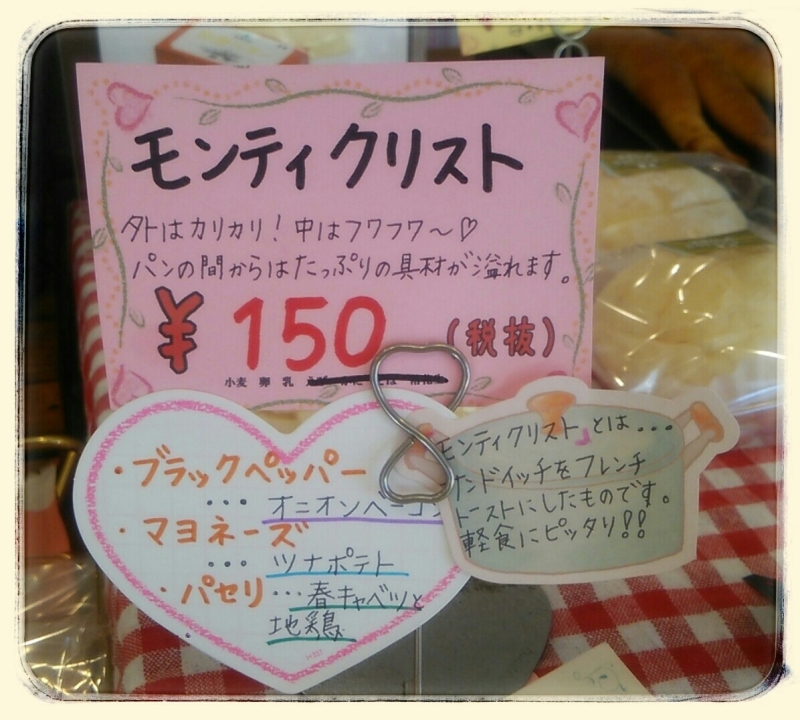 モンティクリスト
外はカリカリ!中はフワフワ〜♡
パンの間からはたっぷりの具材が溢れます。
¥150(税抜)
小麦 卵 乳
・ブラックペッパー
・・・オニオンベーコン
・マヨネーズ
・・・ツナポテト
・パセリ・・・春キャベツと
地鶏
モンティクリスト」とは・・・
サンドイッチをフレンチ
トーストにしたものです。
軽食にピッタリ!!